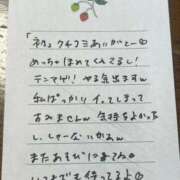 「初」クチコミありがとー♡
めっちゃほめてくれてるし!
テンアゲ! やる気出ますん
私ばっかりイってしまって
すみません 気持ちよかった
し、しゃーないかぁん
またあそびにきてん
いつまでも待ってるよ♡